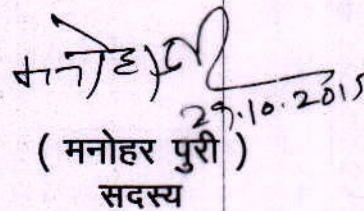 मनोहर
29.10.2015
( मनोहर पुरी )
सदस्य